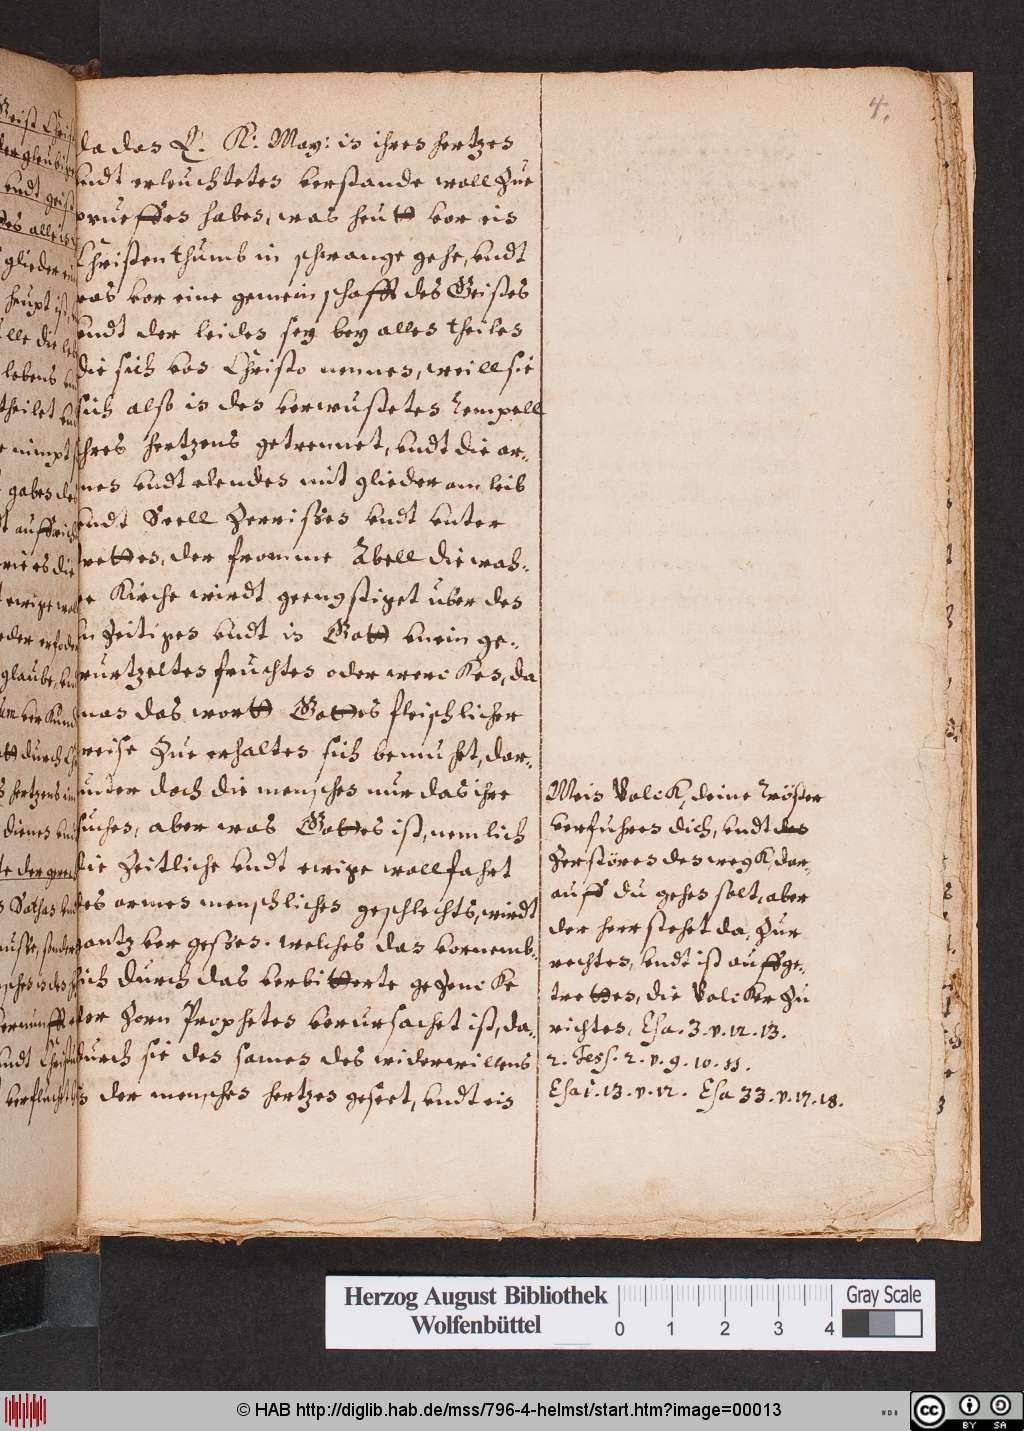 4.
da das E. K: May: in ihren hertzen
vndt erleuchteten verstande woll Zue
prueffen haben, was heutt vor ein
Christenthumb in schwange gehe, vndt
was vor eine gemeinschafft des Geistes
vndt der leiden sey bey allen theilen
die sich von Christo nennen, weill sie
sich also in den verwusteten Tempell
ihres hertzens getrennet, vndt die ar-
men vndt elenden mit glieder am leib
vndt Seell Zerrissen vndt vnter
tretten, der fromme Abell die wah-
re Kirche wirdt geengstiget uber den
in Zeitigen vndt in Gott vnein ge-
wurtzelten fruchten oder wercken, da
man das wortt Gottes fleischlicher
weise Zue erhalten sich bemuhet, dar-
unter doch die menschen nur das ihre
suchen, aber was Gottes ist, nemlich
die Zeitliche vndt ewige wollfahrt
des armen menschlichen geschlechts, wirdt
gantz vergessen. welches das vornemb-
lich durch das verbitterte geZencke
der Zorn Propheten verursachet ist, da-
durch sie den samen des widerwillens
in der menschen hertzen geseet, vndt ein
Mein Volck, deine Tröster
verfuhren dich, vndt
Zerstören den wegk, dar-
auff du gehen solt, aber
der herr stehet da, Zur
rechten, vndt ist auffge-
tretten, die Volcker Zu
richten, Esa. 3. v. 12. 13.
2. Tess. 2. v. 9. 10. 11.
Esai. 13. v. 12. Esa 33. v. 17. 18.
Herzog August Bibliothek
Wolfenbüttel
0 1 2 3 4
Gray Scale
© HAB http://diglib.hab.de/mss/796-4-helmst/start.htm?image=00013
cc BY SA